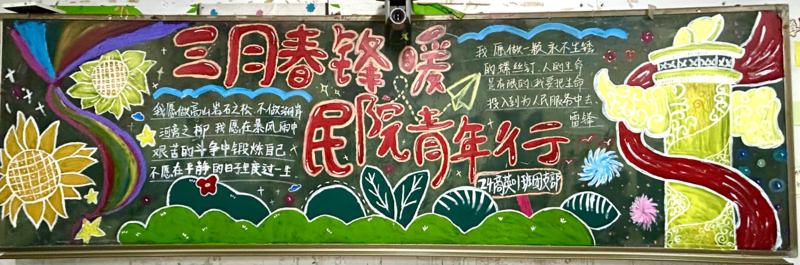 三月春锋暖
民院青年行
我愿做高山岩石之松,不做湖岸
河旁之柳,我愿在暴风雨中
艰苦的斗争中锻炼自己
不愿在平静的日子里度过一生
我愿做一颗永不生锈
的螺丝钉,人的生命
是有限的,我要把生命
投入到为人民服务中去
雷锋
24高英1班团支部